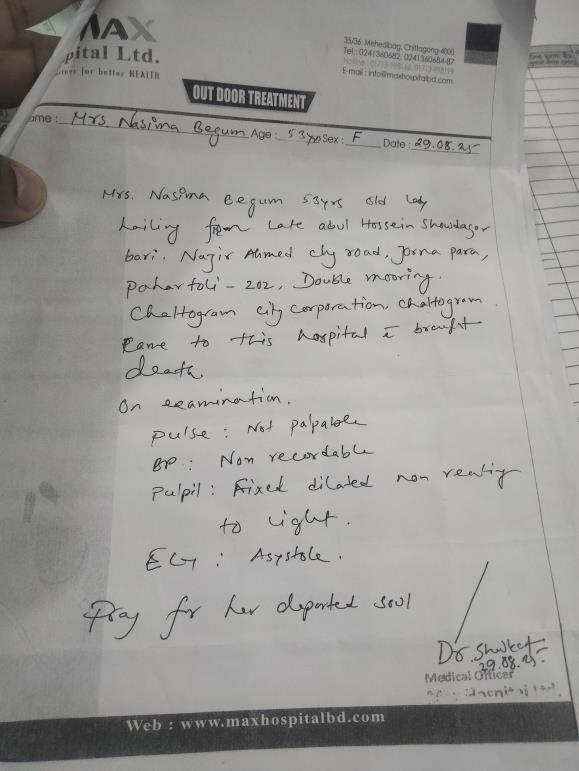 MAX
pital Ltd.
for better HEALTH
35/36, Mehedibag, Chittagong-4000,
Tel : 0241360682, 0241360684-87
E-mail : info@maxhospitalbd.com
OUT DOOR TREATMENT
ame : Mrs Nasima Begum Age : 53yrs Sex : F Date : 29.08.25
Mrs. Nasima Begum 53yrs old lady
hailing from Late abul Hossein Showdagor
bari. Nazir Ahmed chy road, Jorna para,
pahartoli - 202, Double mooring.
Chattogram city corporation, chattogram.
Came to this hospital c̄ brought
death.
On examination.
Pulse : Not palpable
BP : Non recordable
Pulpil : Fixed dilated non reatig
to light.
ECG : Asystole.
Pray for her departed soul
Dr. Shwket
29.08.25
Medical Officer
Web : www.maxhospitalbd.com